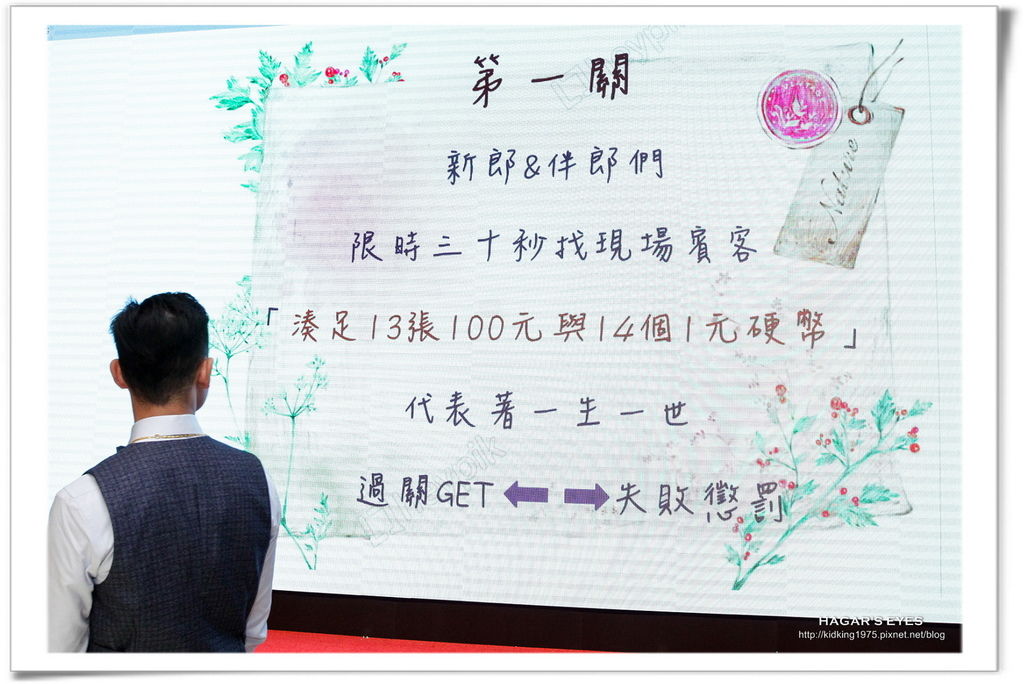 第一關
Nature
新郎&伴郎們
限時三十秒找現場賓客
「湊足13張100元與14個1元硬幣」
代表著一生一世
過關GET
失敗懲罰
HAGAR'S EYES
http://kidking1975.pixnet.net/blog